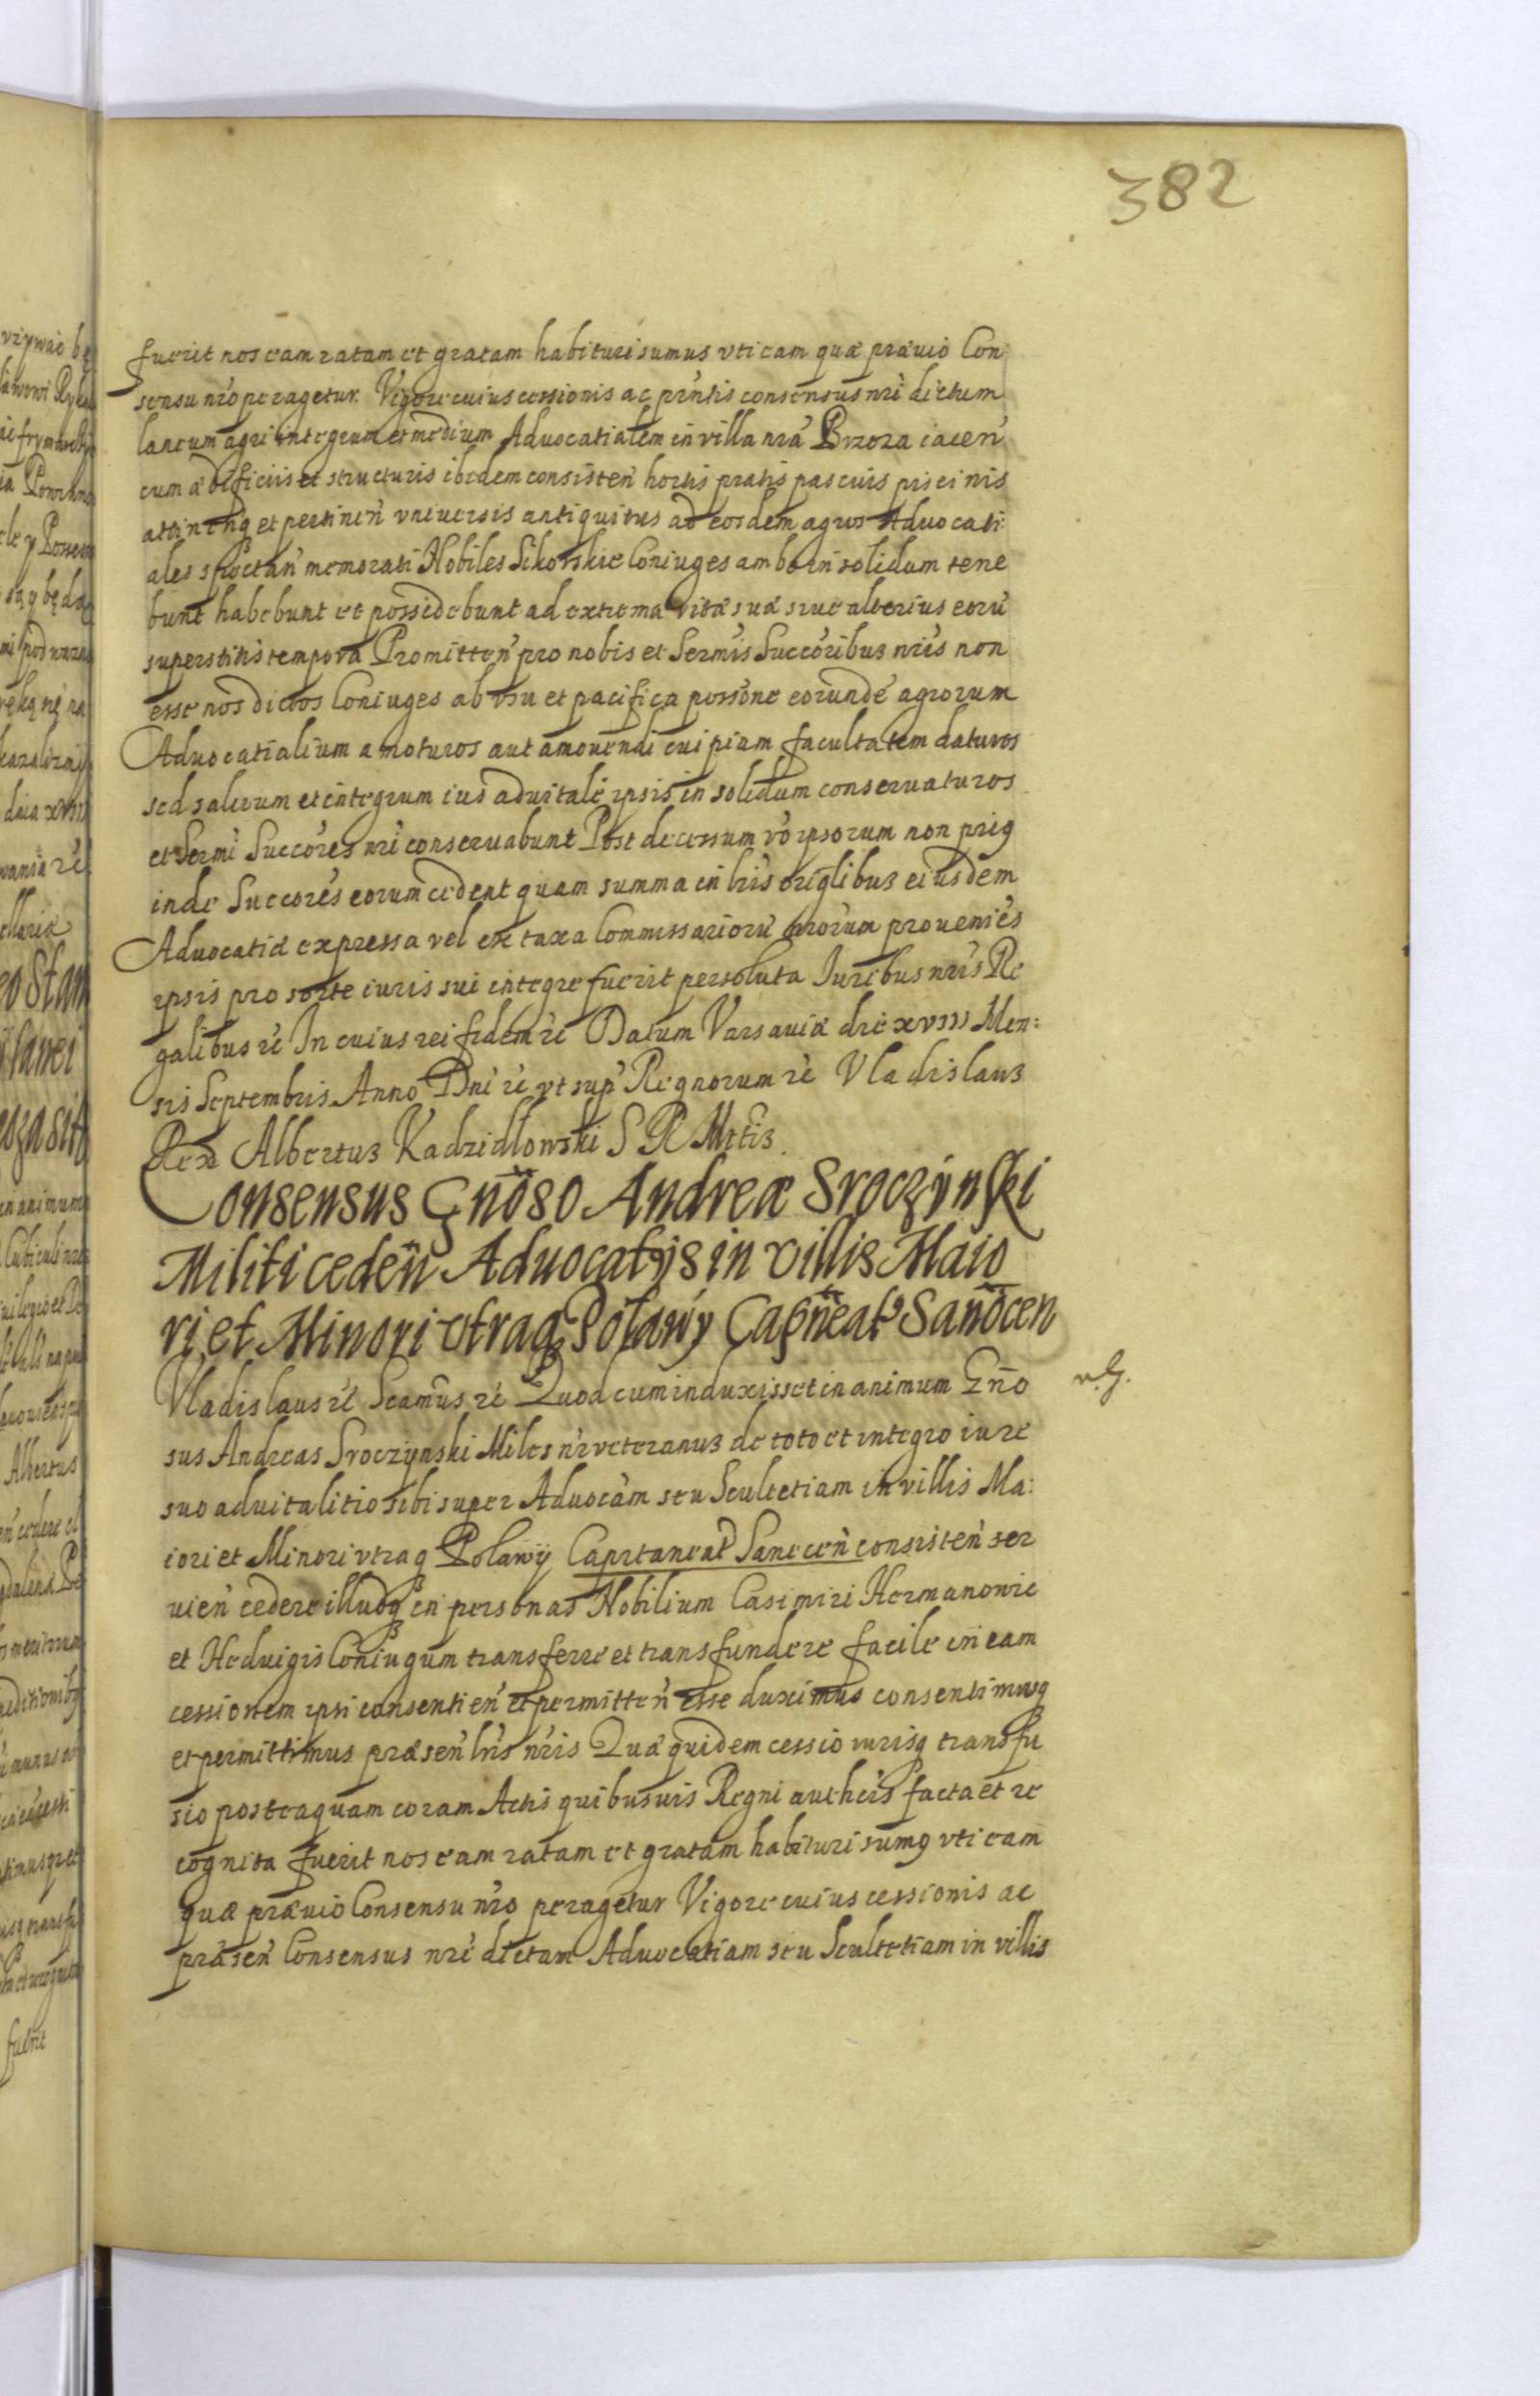 382
fuerit nos eam ratam et gratam habituri sumus vti eam quæ præuio Con
sensu nr̃o peragetur. Vigore cuius cessionis ac pñtis consensus nr̃i dictum
laneum agri integrum et medium Aduocatialem in villa nr̃a Brzoza iaceñ
cum ædificiis et structuris ibidem consisteñ hortis pratis pascuis piscinis
attineñ et pertineñ vniuersis antiquitus ad eosdem agros Aduocati
ales spectañ memorati Nobiles Sikorskie Coniuges ambo in solidum tene
bunt habebunt et possidebunt ad extrema vitæ suæ siue alterius eorũ
superstitis tempora Promitteñ pro nobis et Serm̃is Succõribus nr̃is non
esse nos dictos Coniuges ab vsu et pacifica possõne eorundẽ agrorum
Aduocatialium amoturos aut amouendi cuipiam facultatem daturos
sed saluum et integrum ius aduitalẽ ipsis in solidum conseruaturos
et Serm̃i Succõres nr̃i conseruabunt Post decessum v̓o ipsorum non prius
inde Succõres eorum cedent quam summa in lr̃is origlibus eiusdem
Aduocatiæ expressa vel ex taxa Commissariorũ nr̃orum proueniẽs
ipsis pro sorte iuris sui integre fuerit persoluta Iuribus nr̃is Re
galibus rẽ In cuius rei fidem rẽ Datum Varsauiæ die xviii Men:
sis Septembris Anno Dnĩ rẽ vt sup̃ Regnorum rẽ Vladislaus
Rex Albertus Kadzidlowski S R Mttis.
Consensus Gñoso Andreæ Sroczynski
Militi cedeñ Aduocatijs in villis Maio
ri et Minori vtraq₃ Polawy Capñeat⁹ Sanõcen
Vladislaus rẽ Seamũs rẽ Quod cum induxisset in animum Gñо
n.G.
sus Andreas Sroczynski Miles nr̃ veteranus de toto et integro iure
suo aduitalitio sibi super Aduocãm seu Scultetiam in villis Ma:
iori et Minori vtraq₃ Polawÿ Capitaneat⁹ Sanoceñ consisteñ ser
uieñ cedere illudq₃ in personas Nobilium Casimiri Hermanowic
et Heduigis Coniugum transferre et transfundere facile in eam
cessionem ipsi consentieñ et permitteñ esse duximus consentimusq₃
et permittimus præseñ lr̃is nr̃is Quæ quidem cessio iurisq₃ transfu
sio posteaquam coram Actis quibusuis Regni authẽis facta et re
cognita fuerit nos eam ratam et gratam habituri sumus vti eam
quæ præuio Consensu nr̃o peragetur Vigore cuius cessionis ac
præseñ Consensus nr̃i dictam Aduocatiam seu Scultetiam in villis